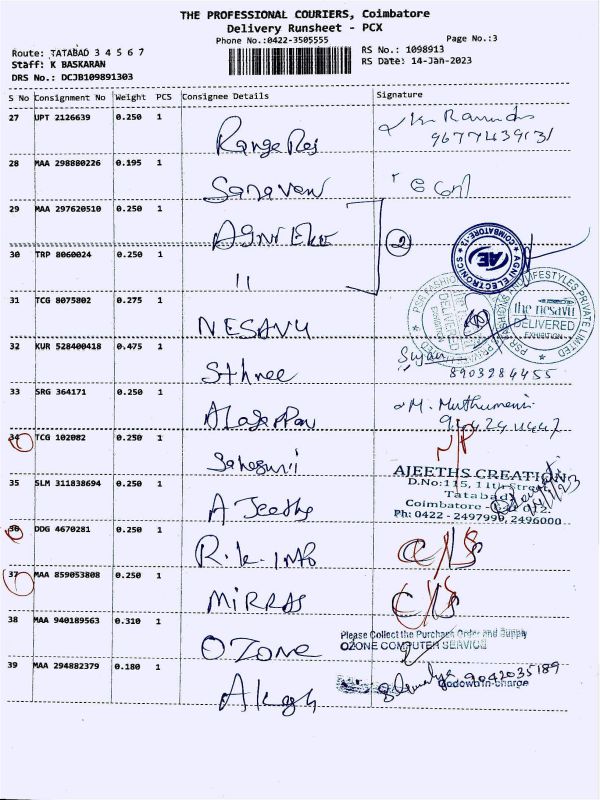 THE PROFESSIONAL COURIERS, Coimbatore
Delivery Runsheet - PCX
Phone No.:0422-3505555
Page No.:3
Route: TATABAD 3 4 5 6 7
RS No.: 1098913
Staff: K BASKARAN
RS Date: 14-Jan-2023
DRS No.: DCJB109891303
S No Consignment No Weight PCS Consignee Details Signature
27 UPT 2126639 0.250 1
Range Raj
9677439131
28 MAA 298880226 0.195 1
Saravan
29 MAA 297620510 0.250 1
2
AGNI ELECTRONICS
COIMBATORE-12
AE
30 TRP 8060024 0.250 1
11
31 TCG 8075802 0.275 1
NESAVU
the nesavu
DELIVERED
EXHIBITION
DELIVERED
EXHIBITION
32 KUR 528400418 0.475 1
Sthree
Sujan
8903284455
33 SRG 364171 0.250 1
Alagappan
M. Muthumeni
34 TCG 102082 0.250 1
N/P
35 SLM 311838694 0.250 1
AJeeths
AJEETHS CREATION
D.No:115, 11th Street
Tatabad
Coimbatore - 12.
Ph: 0422 - 2497990, 2496000
36 DDG 4670281 0.250 1
R.K. Info
C/S
37 MAA 859053808 0.250 1
MIRRAS
C/S
38 MAA 940189563 0.310 1
OZONE
Please Collect the Purchase Order and Supply
OZONE COMPUTER SERVICE
39 MAA 294882379 0.180 1
Akash
9042035189
Godown In-charge